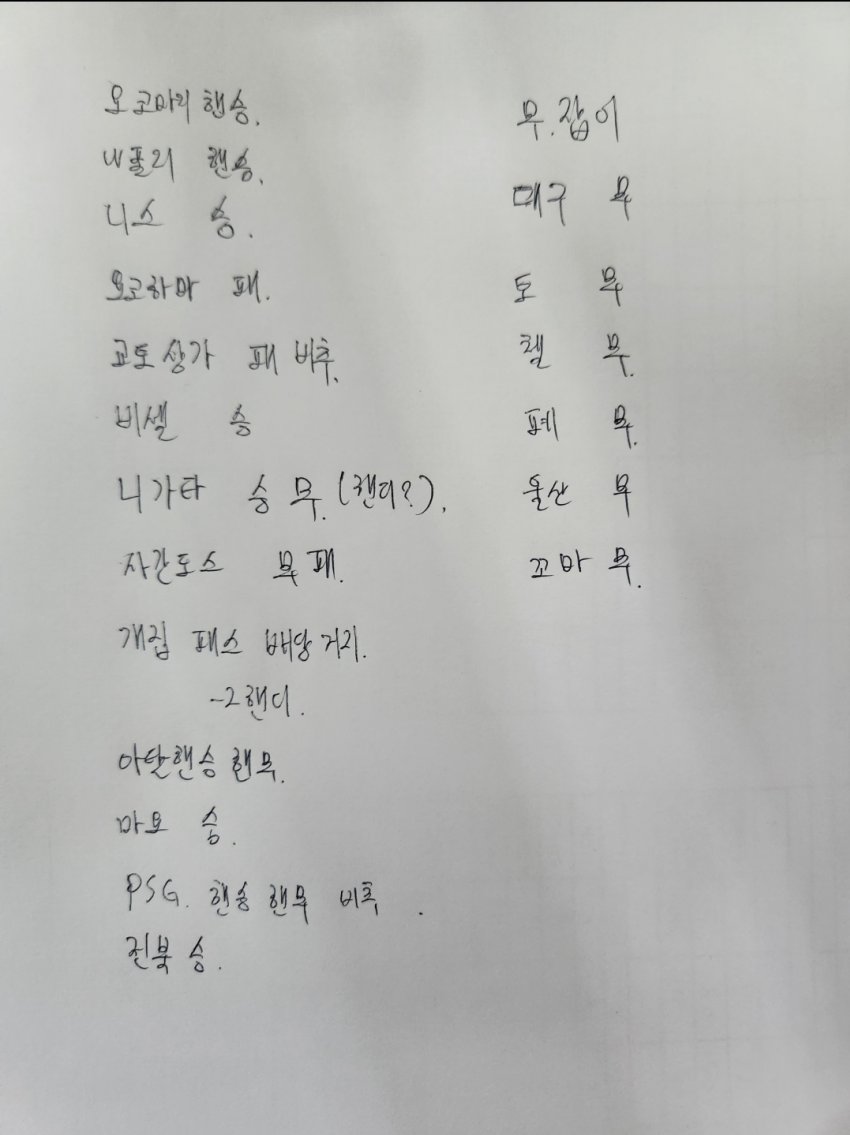 오코마의 핸승.
나폴리 핸승.
니스 승.
요코하마 패.
교토상가 패 비추.
비셀 승
니가타 승 무. (핸디?).
사간도스 무패.
개집 패스 배당 거지.
-2핸디.
아탈핸승 핸무.
마요 승.
PSG. 핸승 핸무 비추.
전북 승.
무.잡이
대구 무
토 무
첼 무.
페 무.
울산 무
꼬마 무.